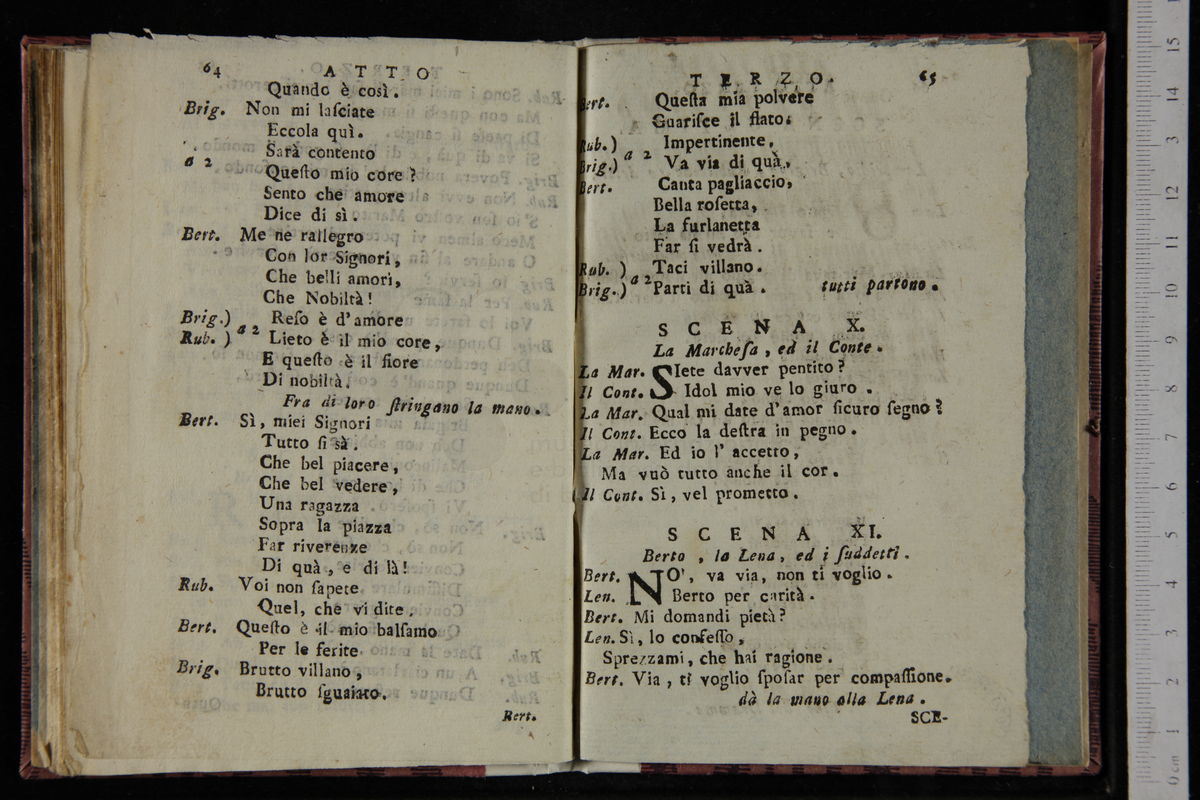 64 ATTO
Quando è così.
Brig. Non mi laſciate
Eccola quì.
Sarà contento
a 2 Queſto mio core?
Sento che amore
Dice di sì.
Bert. Me ne rallegro
Con lor Signori,
Che belli amori,
Che Nobiltà!
Brig.) a 2 Reſo è d'amore
Rub. ) Lieto è il mio core,
E queſto è il fiore
Di nobiltà.
Fra di loro ſtringano la mano.
Bert. Sì, miei Signori
Tutto ſi sà.
Che bel piacere,
Che bel vedere,
Una ragazza
Sopra la piazza
Far riverenze
Di quà, e di là!
Rub. Voi non ſapete
Quel, che vi dite.
Bert. Queſto è il mio balſamo
Per le ferite
Brig. Brutto villano,
Brutto ſguaiato.
Bert.
TERZO. 65
Bert. Queſta mia polvere
Guariſce il flato.
Rub.) a 2 Impertinente,
Brig.) Va via di quà.
Bert. Canta pagliaccio,
Bella roſetta,
La furlanetta
Far ſi vedrà.
Rub. ) a 2 Taci villano.
Brig.) Parti di quà. tutti partono.
SCENA X.
La Marcheſa, ed il Conte.
La Mar. SIete davver pentito?
Il Cont. Idol mio ve lo giuro.
La Mar. Qual mi date d'amor ſicuro ſegno?
Il Cont. Ecco la deſtra in pegno.
La Mar. Ed io l'accetto,
Ma vuò tutto anche il cor.
Il Cont. Sì, vel prometto.
SCENA XI.
Berto, la Lena, ed i ſuddetti.
Bert. NO', va via, non ti voglio.
Len. Berto per carità.
Bert. Mi domandi pietà?
Len. Sì, lo confeſſo,
Sprezzami, che hai ragione.
Bert. Via, ti voglio ſpoſar per compaſſione.
dà la mano alla Lena.
SCE-